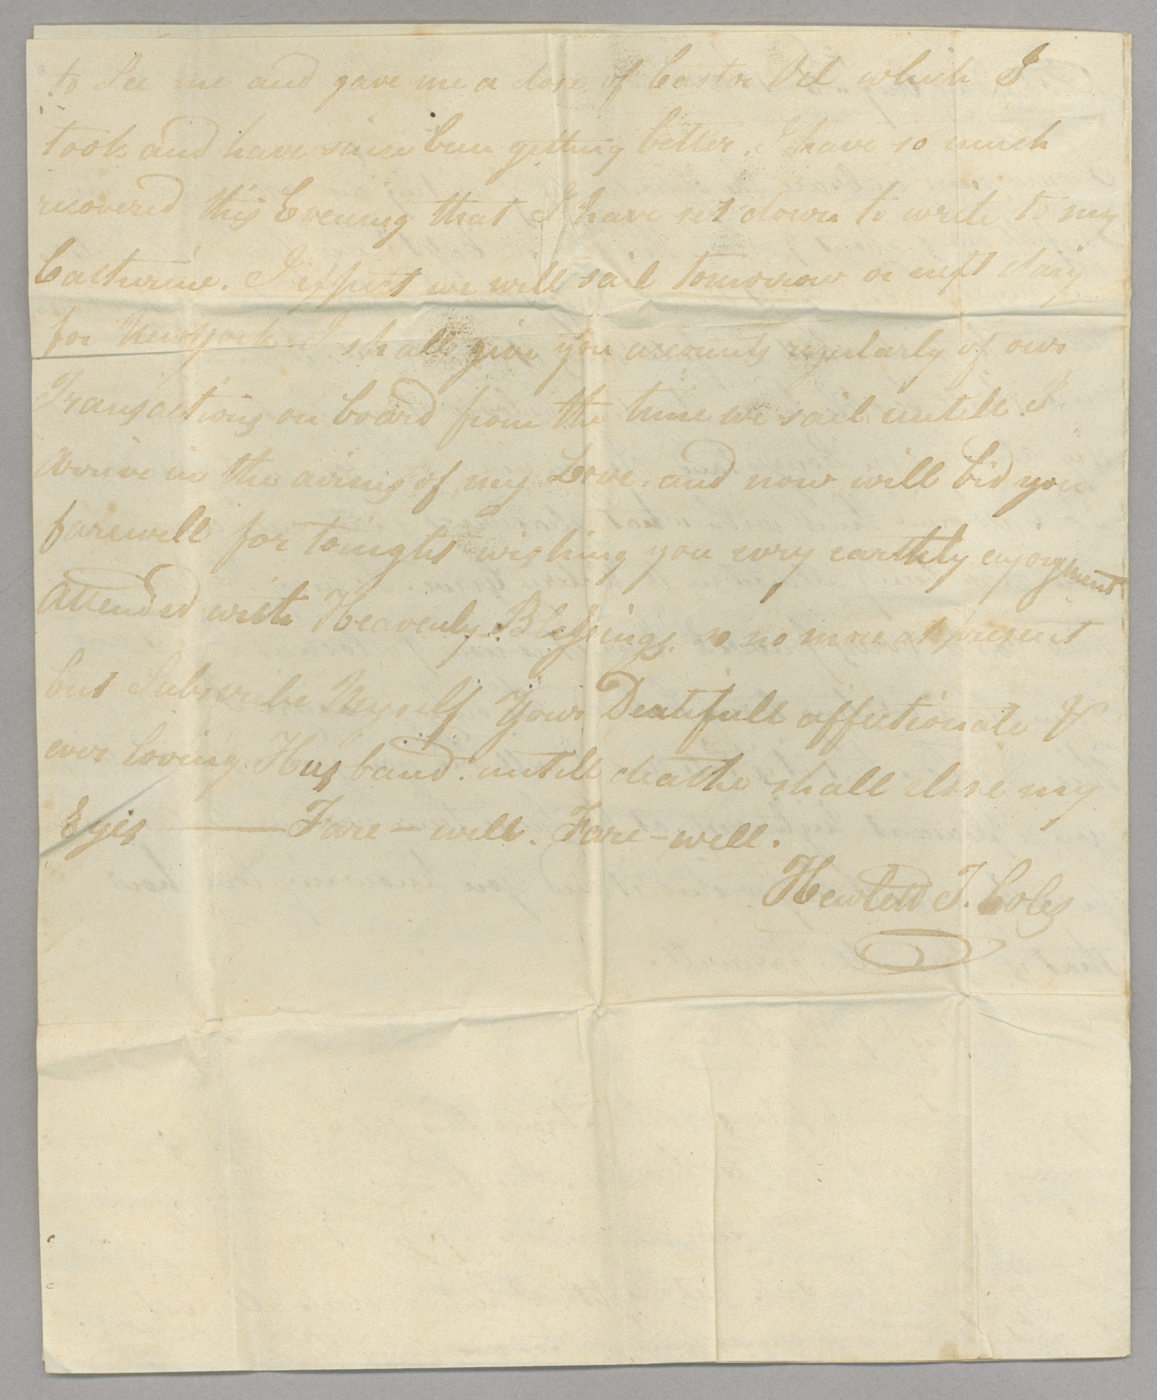 to See me and gave me a dose of Castor Oil which I
took and have since been getting better. I have so much
recovered this Evening that I have set down to write to my
Catherine. I expect we will sail tomorrow or next day
for Newyork. I shall give you accounts regularly of our
Transactions on board from the time we sail untill I
arrive in the arms of my Love and now will bid you
farewell for tonight wishing you evry earthly enjoyment
attended with Heavenly Blessings. so no more at present
but Subscribe Myself Your Deutifull affectionate &
ever loving Husband. untill deathe shall close my
Eyes — Fare-well. Fare-well.
Hewlett T. Coles